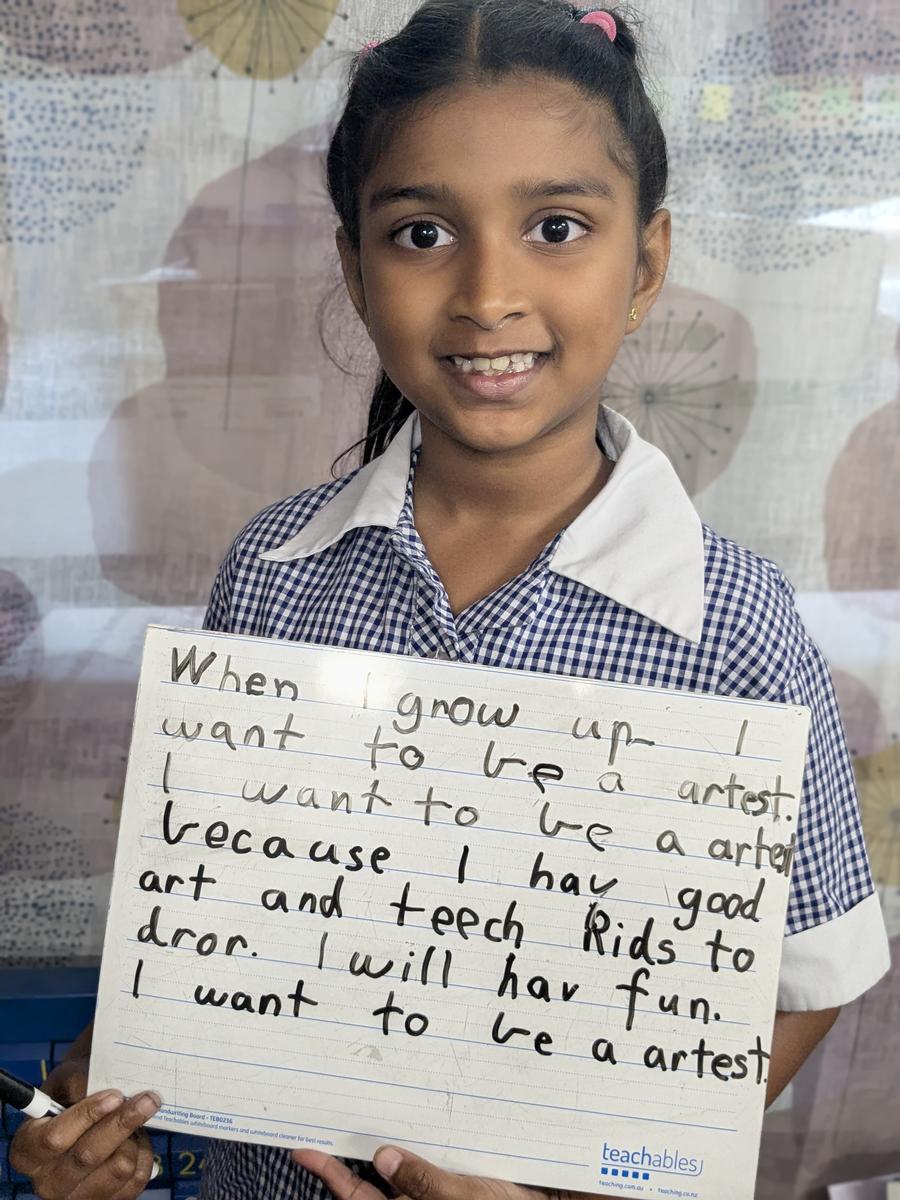 When I grow up I
want to be a artest.
I want to be a artest
because I hav good
art and teech kids to
dror. I will hav fun.
I want to be a artest.
Handwriting Board - TEB0236
Teachables whiteboard markers and whiteboard cleaner for best results.
teachables
teaching.com.au • teaching.co.nz